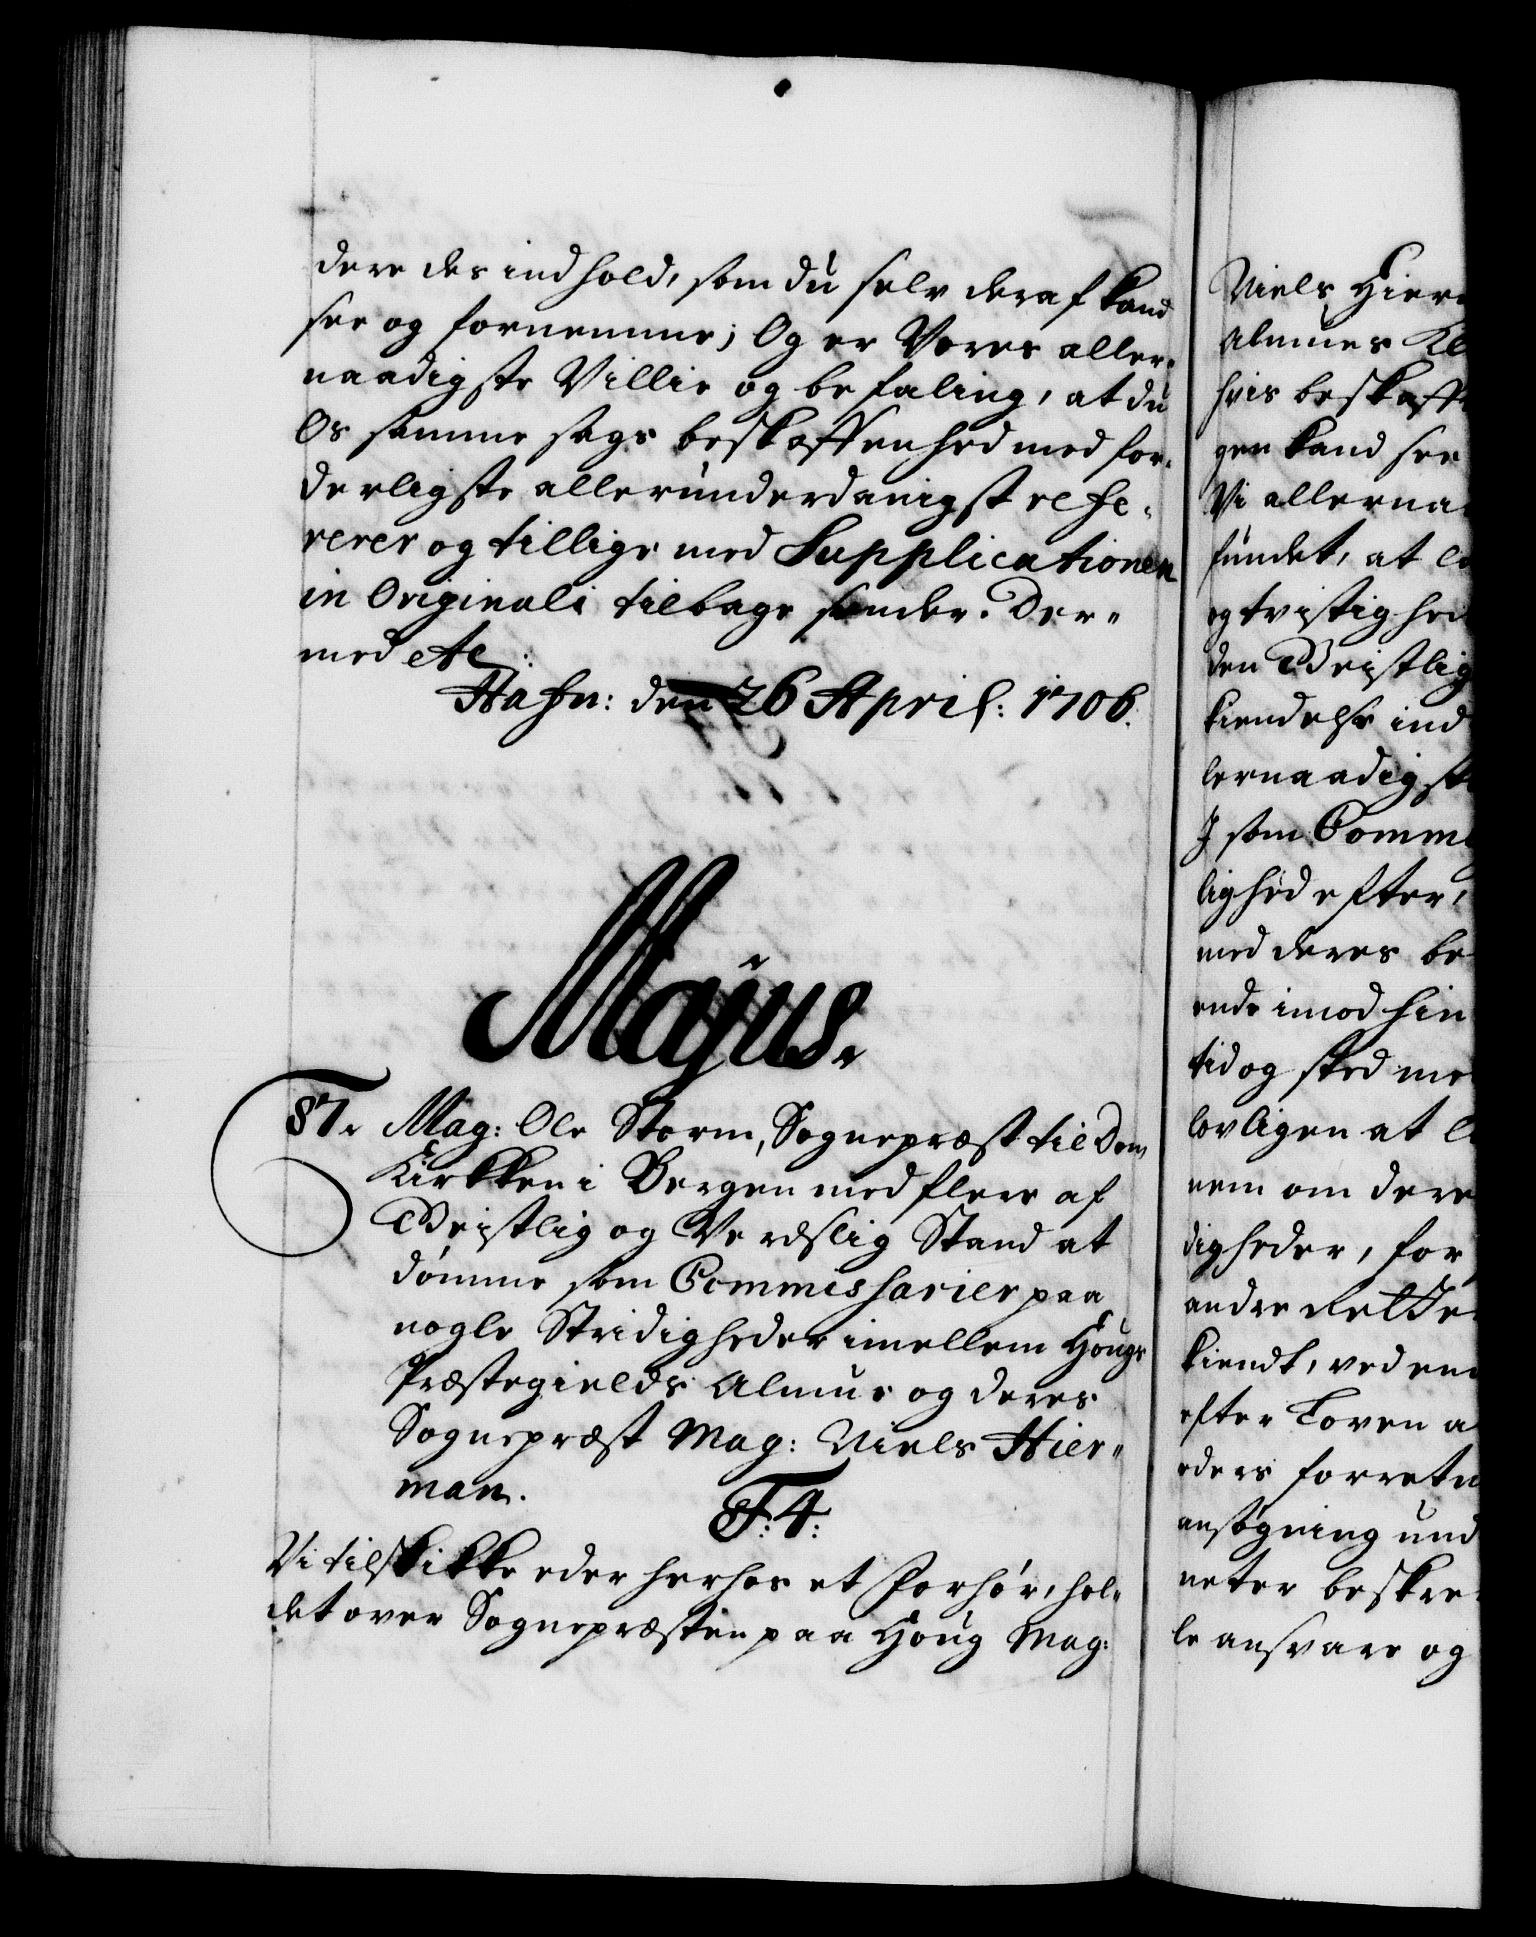 dere des indhold, som du selv deraf kand
see og fornemme; Og er Vores aller-
naadigste Villie og befaling, at du
Os samme sags beskaffenhed med for-
derligste allerunderdanigst refe-
rerer og tillige med Supplicationen
in Originali tilbage sender. Der-
med etc:
Hafn: den 26 April: 1706.
Majus.
87. Mag: Ole Storm, Sognepræst til Dom
Kirkken i Bergen med flere af
Geistlig og Verdslig Stand at
dømme som Commissarier paa
nogle Stridigheder imellem Hougs
Præstegields Almue og deres
Sognepræst Mag: Niels Hier-
man.
F: 4:
Vi tilskikke eder herhos et Forhør, hol-
det over Sognepræsten paa Houg Mag:
Niels Hier
Almues Kl
hvis beskaff
gen kand see
Vi allerna
fundet, at
og tvistighed
den Geistlig
kiendelse ind
lernaadigst
J som Comm
lighed efter,
med deres be
ende imod hin
tid og sted me
lovligen at
nem om dere
digheder, for
andre Rette
kiendt, ved en
efter Loven a
eders forretn
ansøgning und
neter beskre
le ansvare og